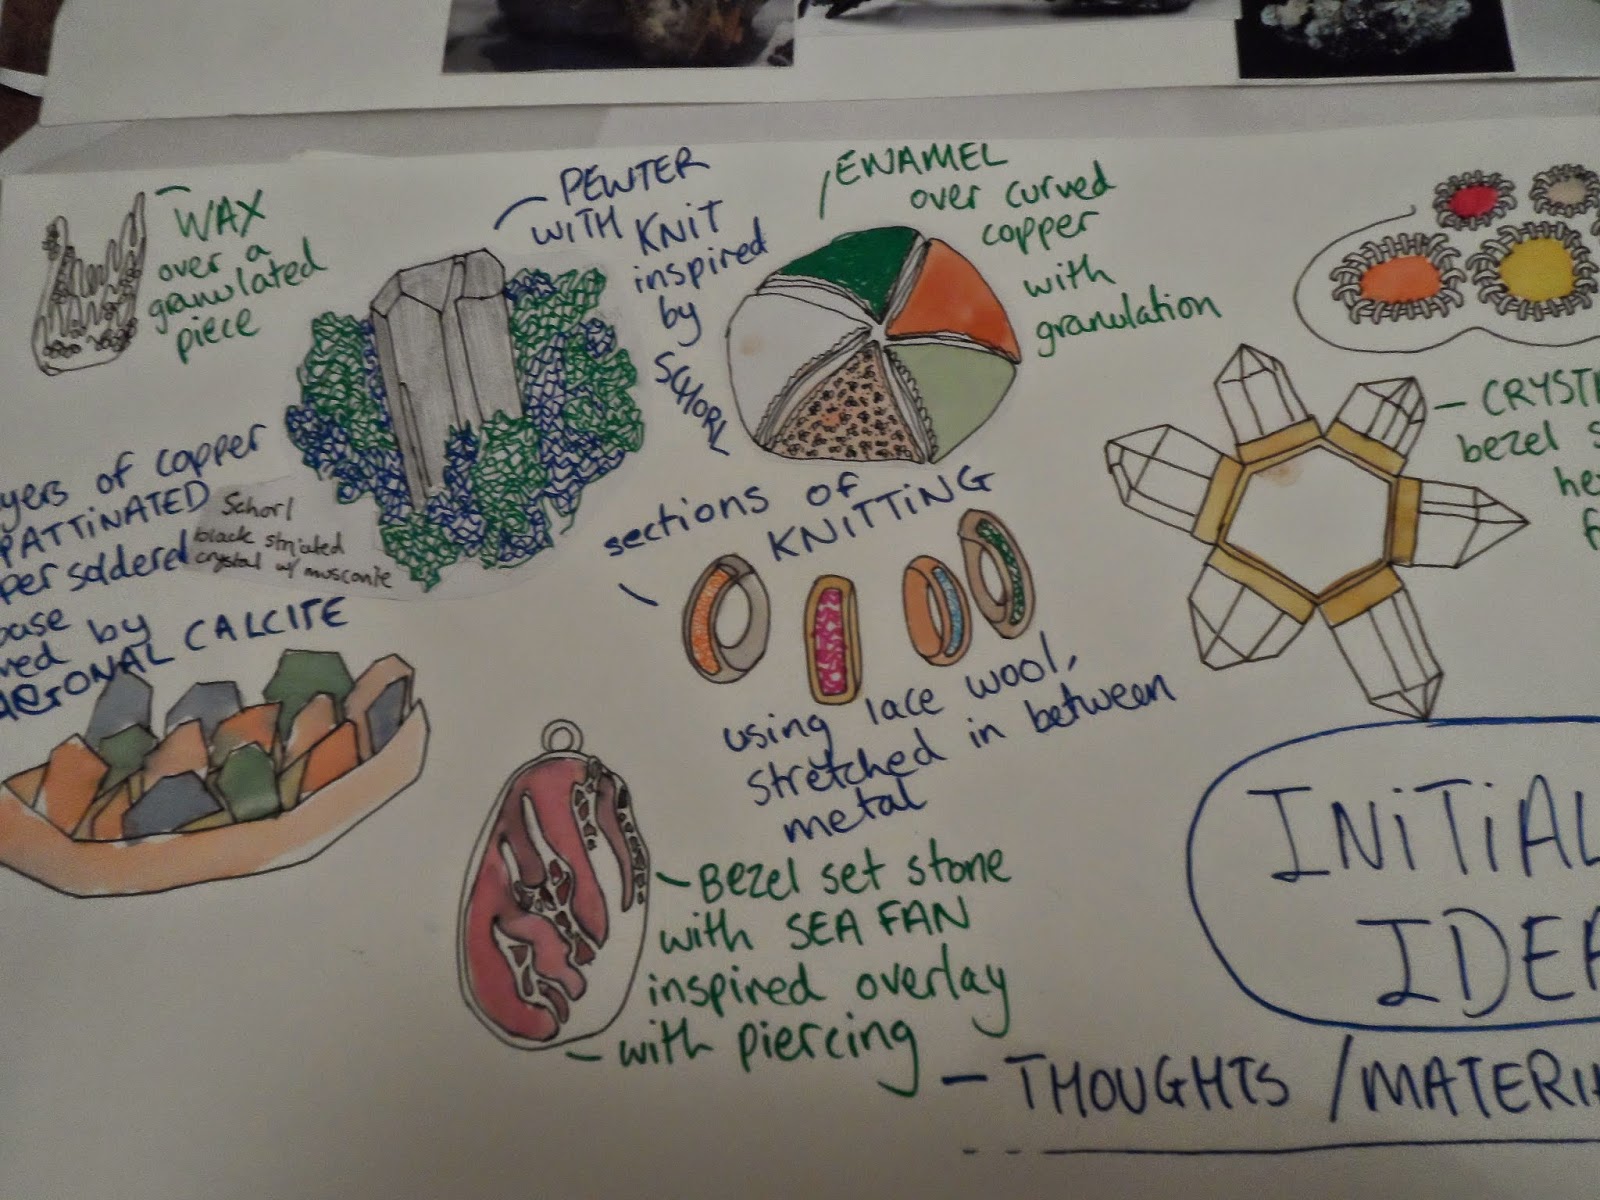 WAX
over a
granulated
piece
PEWTER
WITH KNIT
inspired
by
SCHORL
ENAMEL
over curved
copper
with
granulation
CRYST
bezel s
he
f
yers of copper
PATTINATED
per soldered
base
red by
AGONAL CALCITE
Schorl
black striated
crystal w/ muscovie
sections of
KNITTING
using lace wool,
stretched in between
metal
Bezel set stone
with SEA FAN
inspired overlay
with piercing
INITIAL
IDEA
- THOUGHTS / MATERIA